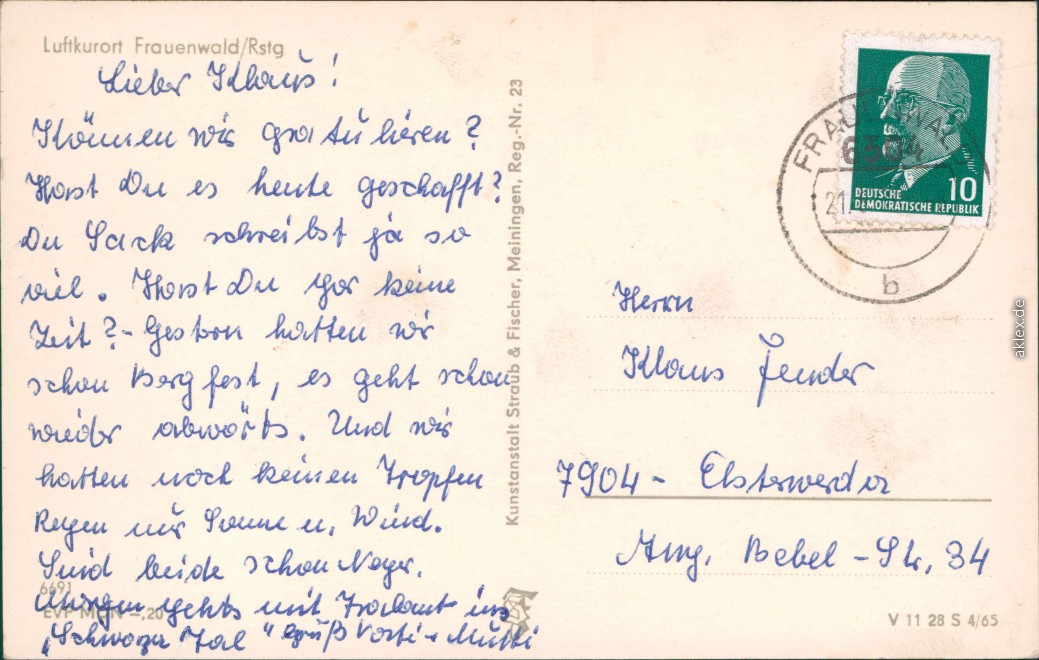 Luftkurort Frauenwald/Rstg
Lieber Klaus!
Können wir gratulieren?
Hast Du es heute geschafft?
Du Sack schreibst ja so
viel. Hast Du gar keine
Zeit? - Gestern hatten wir
schon Bergfest, es geht schon
wieder abwärts. Und wir
hatten noch keinen Tropfen
Regen nur Sonne u. Wind.
Sind beide schon Neger.
Morgen gehts mit Trabant ins
„Schwarza Tal" Gruß Vati u Mutti
6691
EVP MDN –,20
Kunstanstalt Straub & Fischer, Meiningen, Reg.-Nr. 23
FRAUENWALD
6304
21.
b
10
DEUTSCHE
DEMOKRATISCHE REPUBLIK
Herrn
Klaus
7904 - Elsterwerda
Aug. Bebel - Str. 34
V 11 28 S 4/65
aklex.de